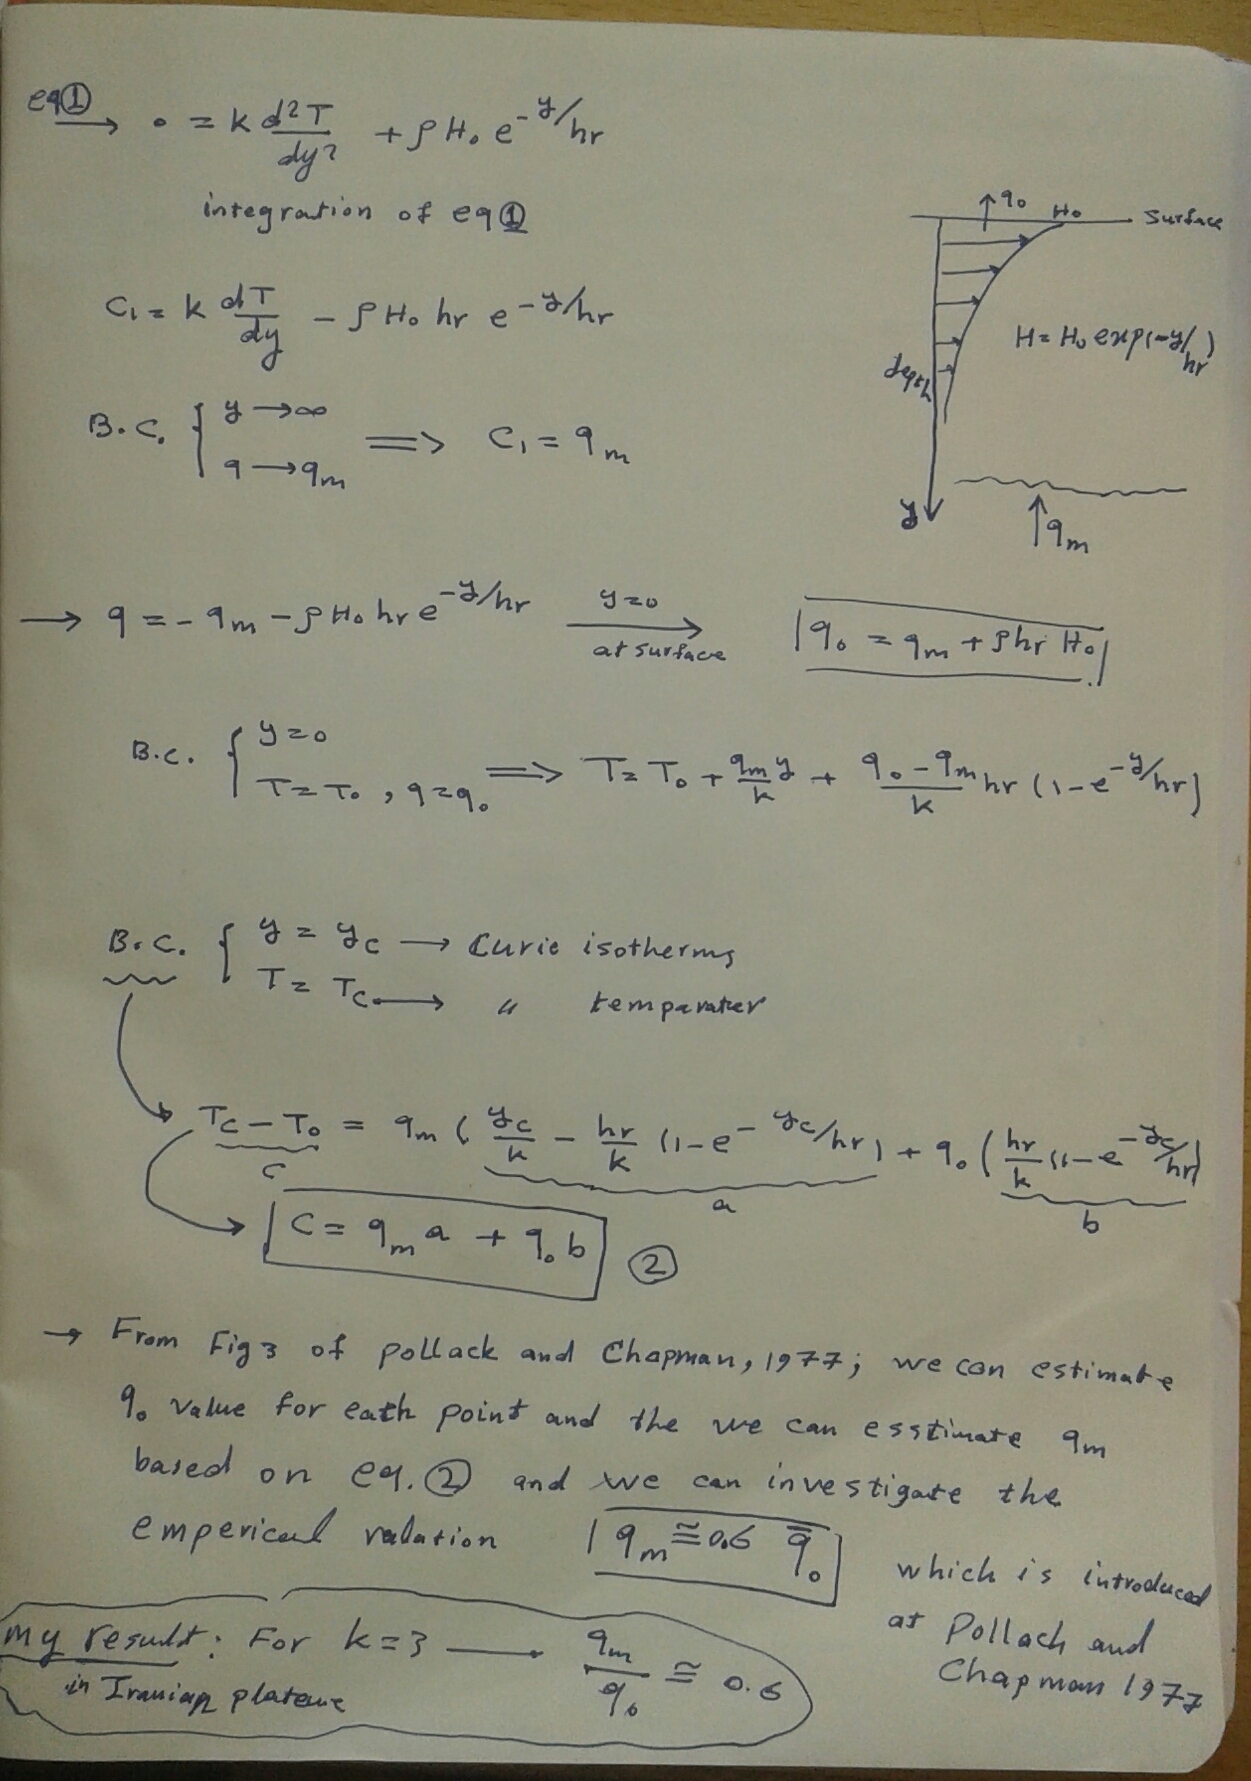 eq① → 0 = k d²T/dy² + ρH₀ e^(-y/hr)
integration of eq①
C₁ = k dT/dy - ρH₀ hr e^(-y/hr)
B.C. { y → ∞
q → qm ⇒ C₁ = qm
↑q₀ H₀ Surface
H = H₀ exp(-y/hr)
depth
y
↑qm
→ q = - qm - ρH₀ hr e^(-y/hr) y=0 at surface → q₀ = qm + ρhr H₀
B.C. { y=0
T=T₀, q=q₀ ⇒ T = T₀ + qm y/k + (q₀ - qm)/k hr (1-e^(-y/hr))
B.C. { y = yc → Curie isotherms
T = Tc → " temparater
Tc - T₀ = qm ( yc/k - hr/k (1-e^(-yc/hr)) + q₀ ( hr/k (1-e^(-yc/hr))
c a b
C = qm a + q₀ b ②
→ From Fig 3 of pollack and Chapman, 1977; we can estimate
q₀ value for eath point and the we can esstimate qm
based on eq. ② and we can investigate the
emperical relation qm ≅ 0.6 q̄₀ which is introduced
at Pollach and
Chapman 1977
my result: For k=3 — qm/q₀ ≅ 0.6
in Iranian plateue